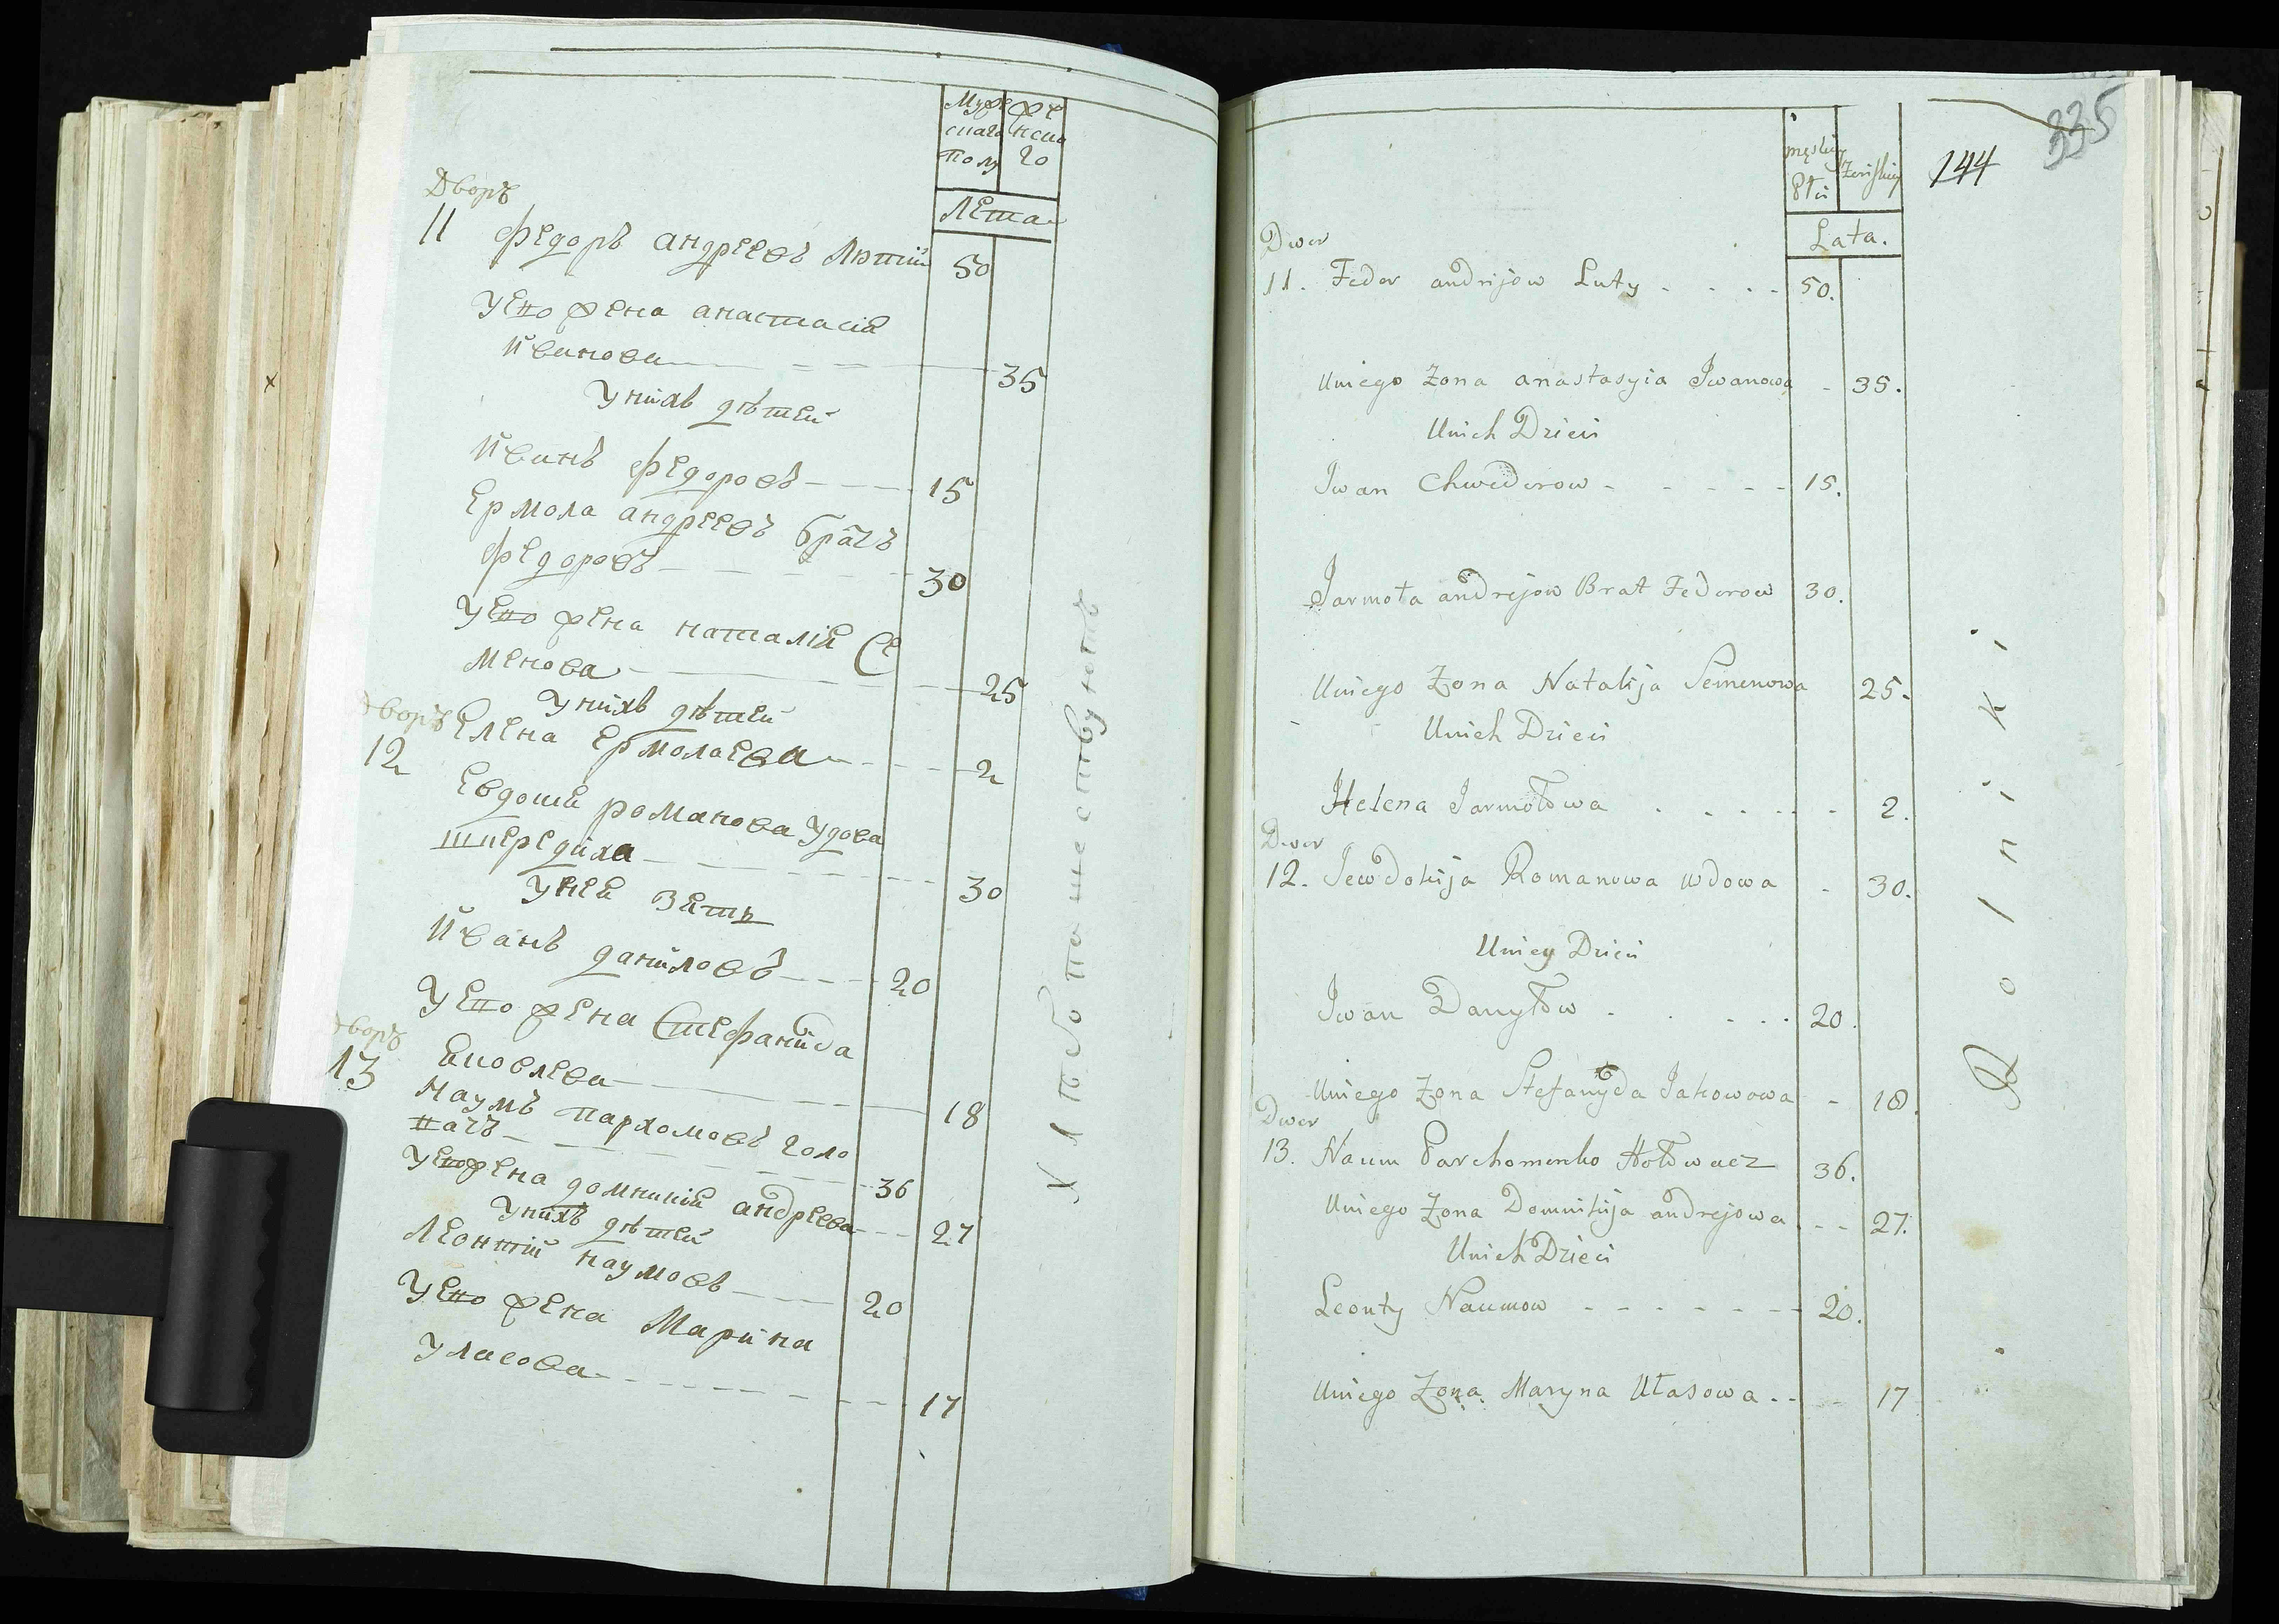 Мужеска полу
Женска го
Лета
Дворъ
11 Федоръ андреевъ Лютий 50
Уего жена анастасия
Иванова 35
Унихъ дѣтей
Иванъ Федоровъ 15
Ермола андреевъ братъ
Федоровъ 30
Уего жена наталия Се
менова 25
Унихъ дѣтей
Дворъ
Елена Ермолаева 2
12
Евдокия романова удова
30
Унея Зять
Иванъ даниловъ 20
Уего жена Стефанида
Дворъ
Яковлева 18
13
Наумъ пархомовъ Голо
вачъ 36
Уего жена домникия андреева 27
Унихъ дѣтей
Леонтий наумовъ 20
Уего жена Марина
Уласова 17
Хлѣбопашествують
męskiey Płci
Żeńskiey
144
335
Lata.
Dwor
11. Fedor andrijow Luty 50.
Uniego Żona anastasyia Iwanowa 35.
Unich Dzieci
Iwan Chwedorow 15.
Jarmoła andrejow Brat Fedorow 30.
Uniego Żona Natalija Semenowa 25.
Unich Dzieci
Helena Jarmołowa 2.
Dwor
12. Jewdokija Romanowa wdowa 30.
Uniey Dzieci
Iwan Danyłow 20.
Uniego Żona Stefanyda Jakowowa 18.
Dwor
13. Naum Parchomenko Hołowacz 36.
Uniego Żona Domnikija andrejowa 27.
Unich Dzieci
Leonty Naumow 20.
Uniego Żona Maryna Ułasowa 17
Rolniki